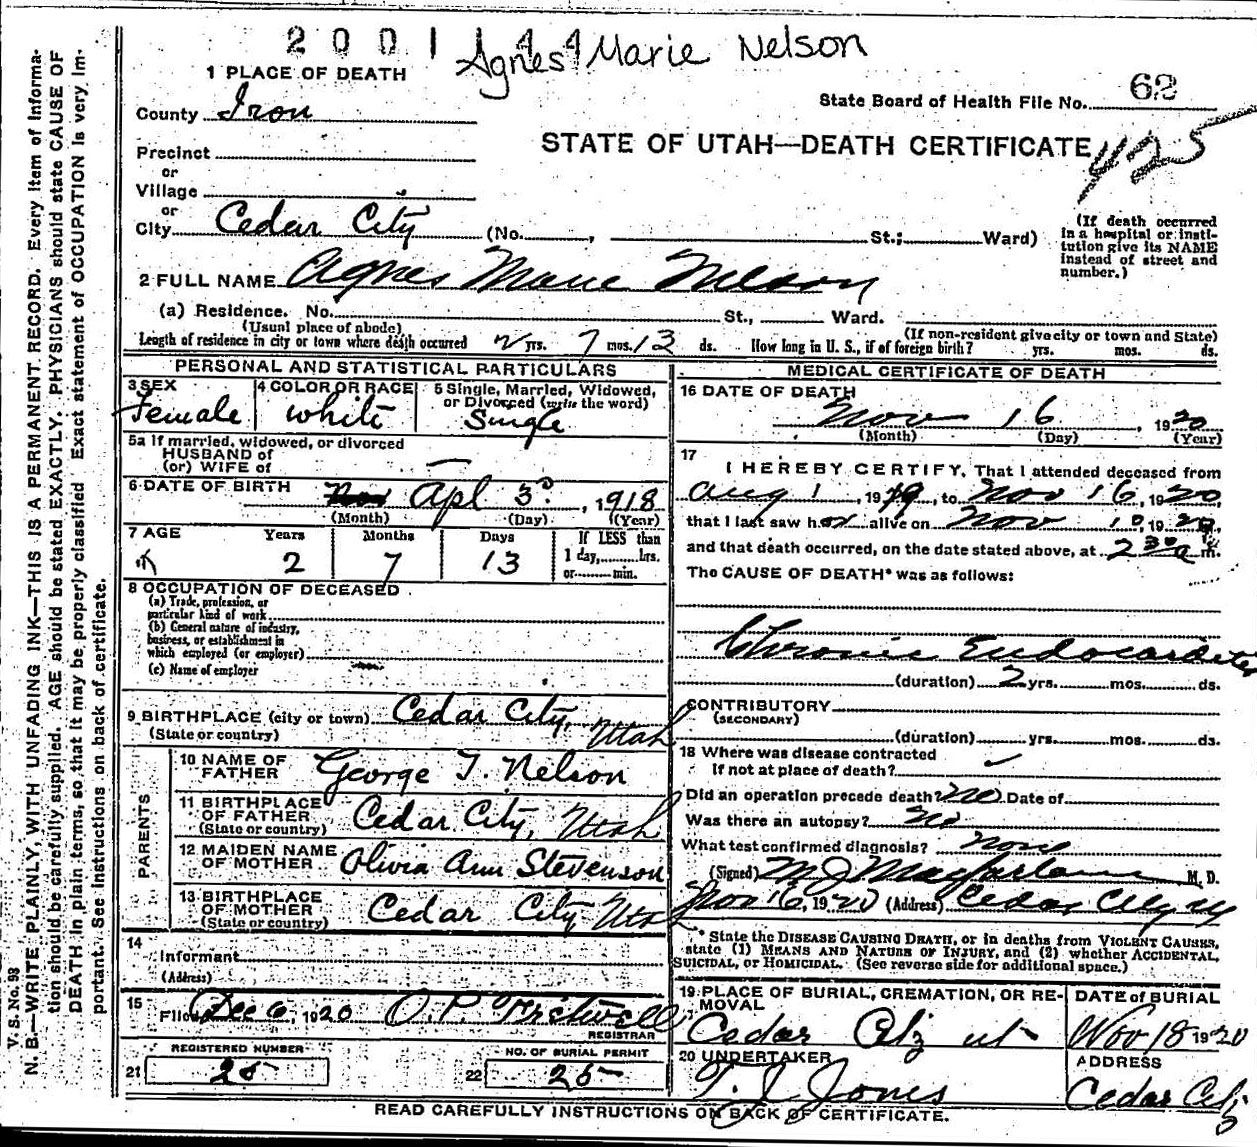 2001144 Agnes Marie Nelson
1 PLACE OF DEATH
County Iron
State Board of Health File No. 62
STATE OF UTAH—DEATH CERTIFICATE 425
Precinct
or
Village
or
City Cedar City (No. , St.; Ward)
(If death occurred in a hospital or insti-
tution give its NAME
instead of street and
number.)
2 FULL NAME Agnes Marie Nelson
(a) Residence. No. St., Ward.
(Usual place of abode) (If non-resident give city or town and State)
Length of residence in city or town where death occurred 2 yrs. 7 mos. 13 ds. How long in U. S., if of foreign birth? yrs. mos. ds.
PERSONAL AND STATISTICAL PARTICULARS
3 SEX Female
4 COLOR OR RACE White
5 Single, Married, Widowed,
or Divorced (write the word)
Single
5a If married, widowed, or divorced
HUSBAND of
(or) WIFE of —
6 DATE OF BIRTH Nov Apl 3, 1918
(Month) (Day) (Year)
7 AGE Years Months Days If LESS than
2 7 13 1 day, hrs.
or min.
8 OCCUPATION OF DECEASED
(a) Trade, profession, or
particular kind of work
(b) General nature of industry,
business, or establishment in
which employed (or employer)
(c) Name of employer
9 BIRTHPLACE (city or town) Cedar City,
(State or country) Utah
PARENTS
10 NAME OF
FATHER George T. Nelson
11 BIRTHPLACE
OF FATHER Cedar City, Utah
(State or country)
12 MAIDEN NAME
OF MOTHER Olivia Ann Stevenson
13 BIRTHPLACE
OF MOTHER Cedar City Utah
(State or country)
14
Informant
(Address)
15 Filed Dec 6, 1920 O.P. Fretwell
REGISTRAR
REGISTERED NUMBER
21 25
NO. OF BURIAL PERMIT
22 25
MEDICAL CERTIFICATE OF DEATH
16 DATE OF DEATH
Nov 16, 1920
(Month) (Day) (Year)
17
I HEREBY CERTIFY, That I attended deceased from
Aug 1, 1919, to Nov 16, 1920,
that I last saw her alive on Nov 1920,
and that death occurred, on the date stated above, at 2 30 a m.
The CAUSE OF DEATH* was as follows:
Chronic Endocarditis
(duration) 2 yrs. mos. ds.
CONTRIBUTORY
(SECONDARY)
(duration) yrs. mos. ds.
18 Where was disease contracted
If not at place of death?
Did an operation precede death? No Date of
Was there an autopsy? No
What test confirmed diagnosis? None
(Signed) M J Macfarlane M. D.
Nov 16, 1920 (Address) Cedar City Ut
* State the DISEASE CAUSING DEATH, or in deaths from VIOLENT CAUSES,
state (1) MEANS AND NATURE OF INJURY, and (2) whether ACCIDENTAL,
SUICIDAL, OR HOMICIDAL. (See reverse side for additional space.)
19 PLACE OF BURIAL, CREMATION, OR RE-
MOVAL
Cedar City ut
DATE of BURIAL
Nov 18 1920
20 UNDERTAKER
T. J. Jones
ADDRESS
Cedar City
READ CAREFULLY INSTRUCTIONS ON BACK OF CERTIFICATE.
V. S. No. 98
N. B.—WRITE PLAINLY, WITH UNFADING INK—THIS IS A PERMANENT RECORD. Every item of Informa-
tion should be carefully supplied. AGE should be stated EXACTLY. PHYSICIANS should state CAUSE OF
DEATH in plain terms, so that it may be properly classified. Exact statement of OCCUPATION is very im-
portant. See instructions on back of certificate.